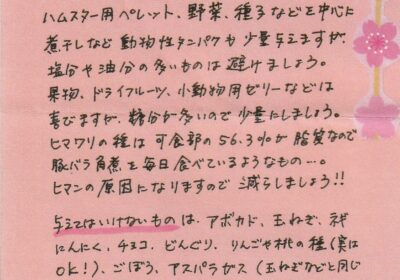 ハムスター用ペレット、野菜、種子などを中心に
煮干しなど動物性タンパクも少量与えますが、
塩分や油分の多いものは避けましょう。
果物、ドライフルーツ、小動物用ゼリーなどは
喜びますが、糖分が多いので少量にしましょう。
ヒマワリの種は可食部の56.3%が脂質なので
豚バラ角煮を毎日食べているようなもの…。
ヒマンの原因になりますので減らしましょう!!
与えてはいけないものは、アボカド、玉ねぎ、ネギ
にんにく、チョコ、どんぐり、りんごや桃の種(実は
OK!)、ごぼう、アスパラガス(玉ねぎなどと同じ